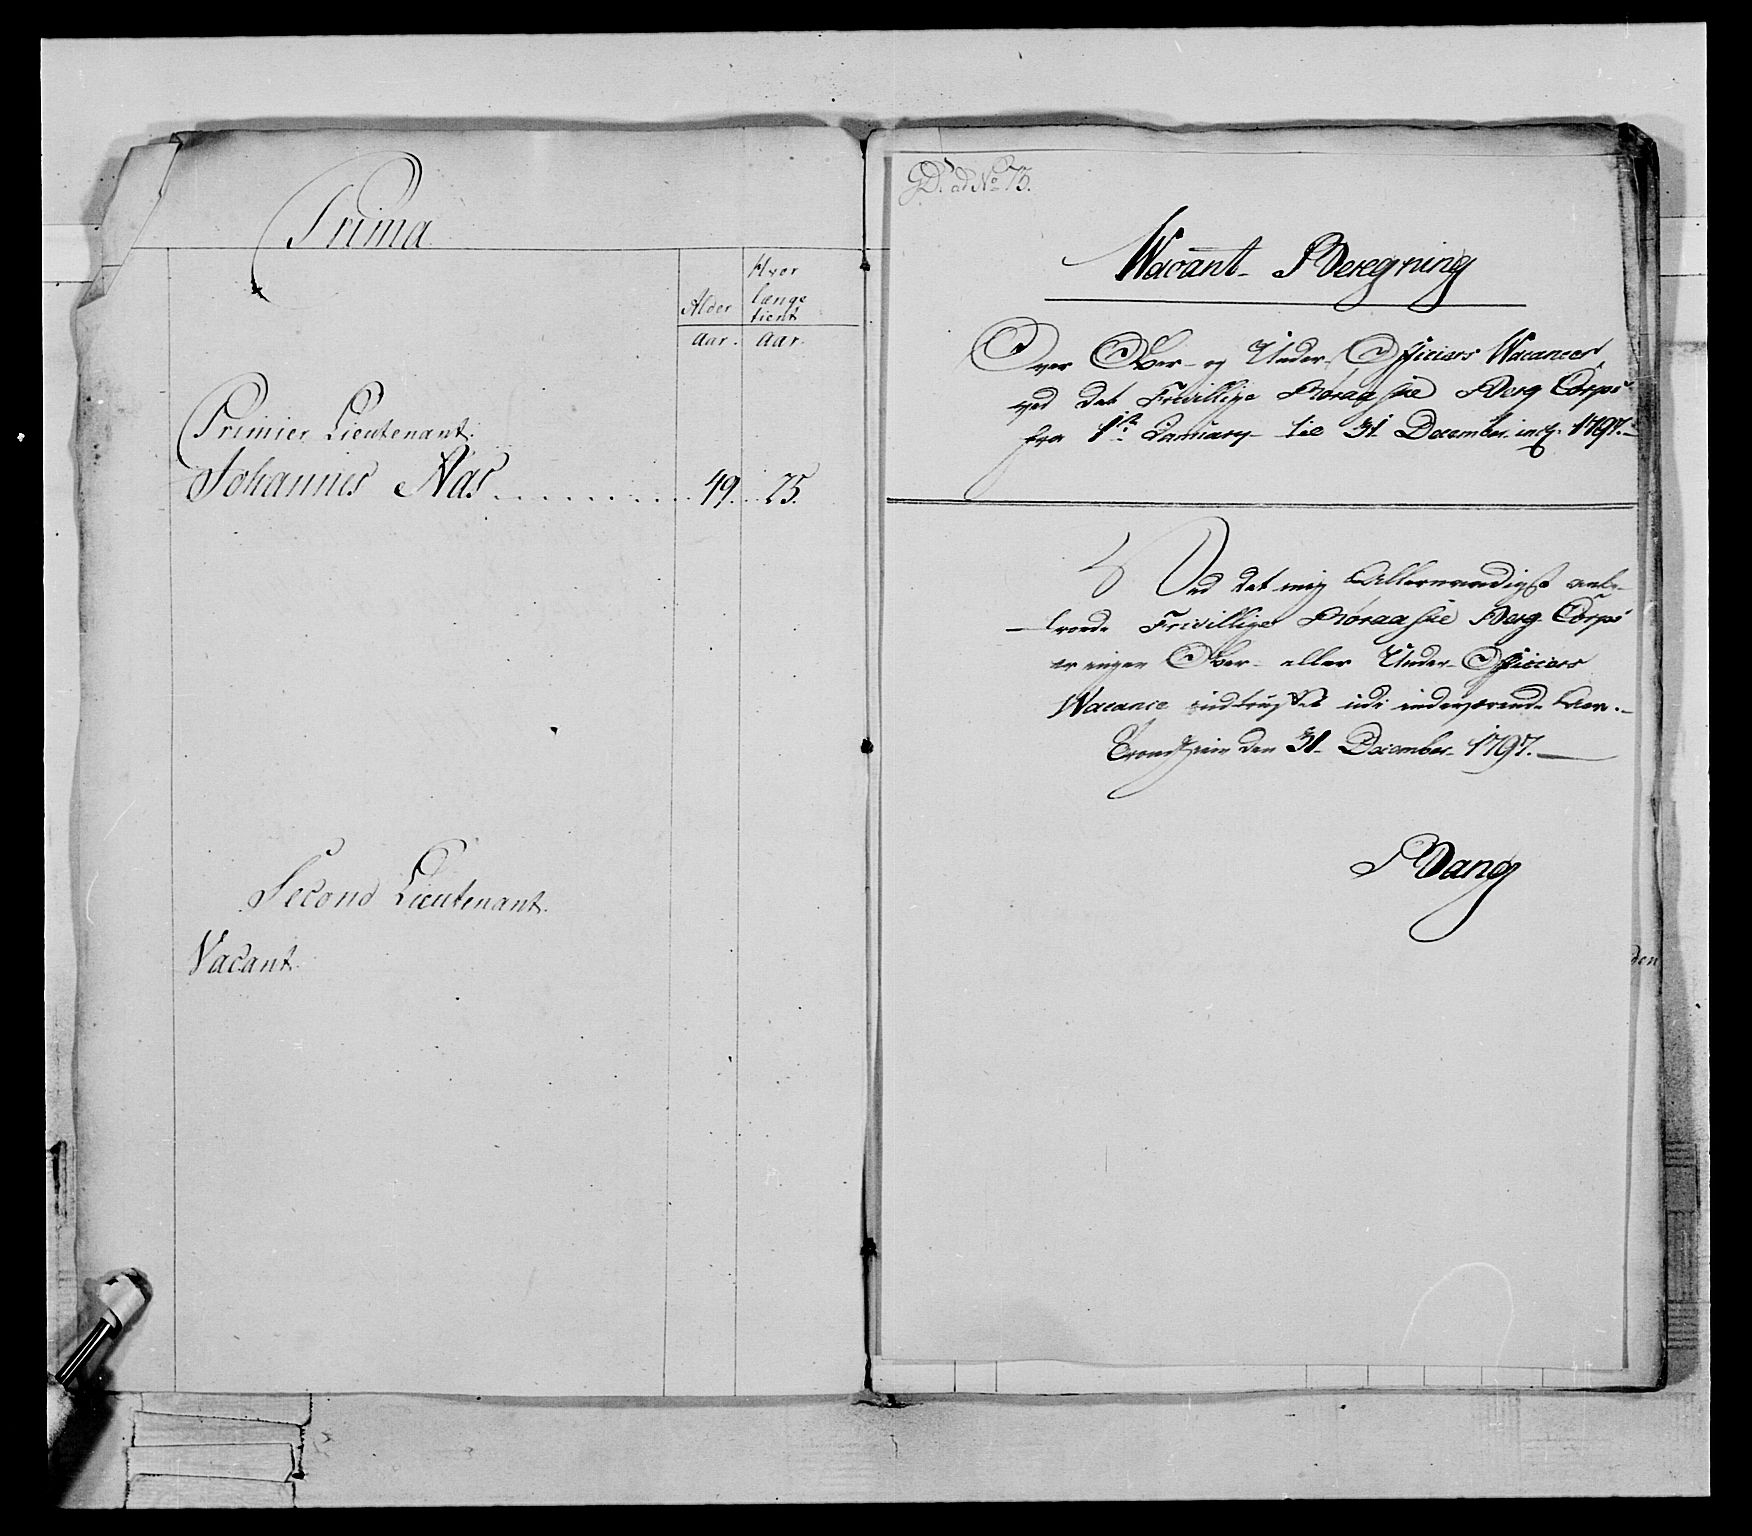 Prima
Alder
Hvor
længe
tient
aar.
aar.
Primier Lieutenant.
Johannes Aas 49. 25.
Second Lieutenant.
Vacant.
GD. ad No 73.
Wacant-Beregning
Over Ober- og Under-Officiers Wacancer
ved det Frivillige Røraasske Berg Corps
fra 1ste January til 31 December incl. 1797.
Ved det mig Allernaadigst anbe-
troede Frivillige Røraasske Berg Corps
er ingen Ober- eller Under-Officiers
Wacance indtruffet udi indeværende Aar.
Trondhiem den 31 December 1797.
Bang
den